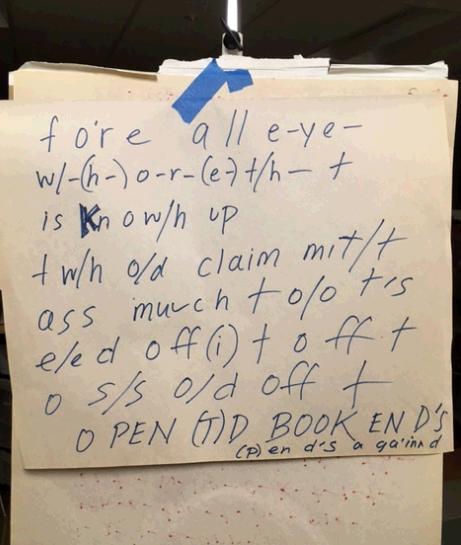 fore all e-ye-
w/-(h-)o-r-(e-)t/h- t
is Know/h up
t w/h o/d claim mit/t
ass muuch t o/o t's
e/ed off(i) t o ff t
o s/s o/d off t
O PEN (T)D BOOK EN D'S
(p) en d's a ga'inn d